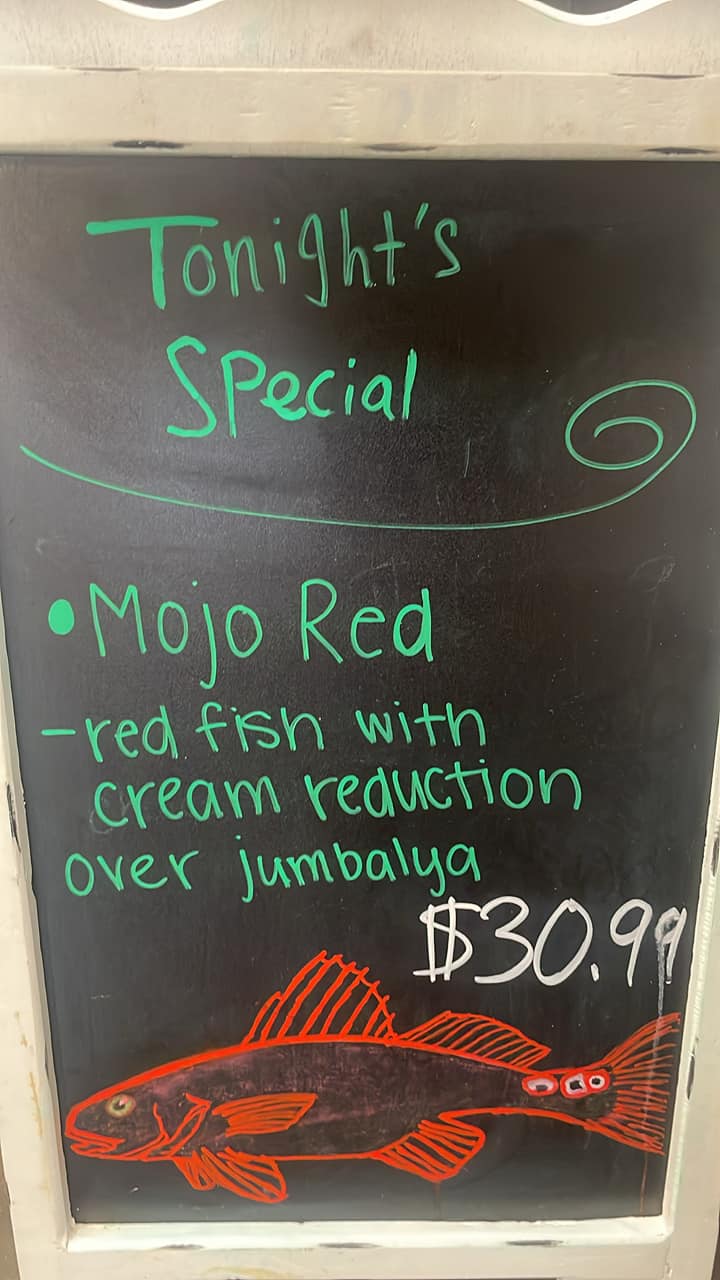 Tonight's
Special
• Mojo Red
- red fish with
cream reduction
over jumbalya
$30.99